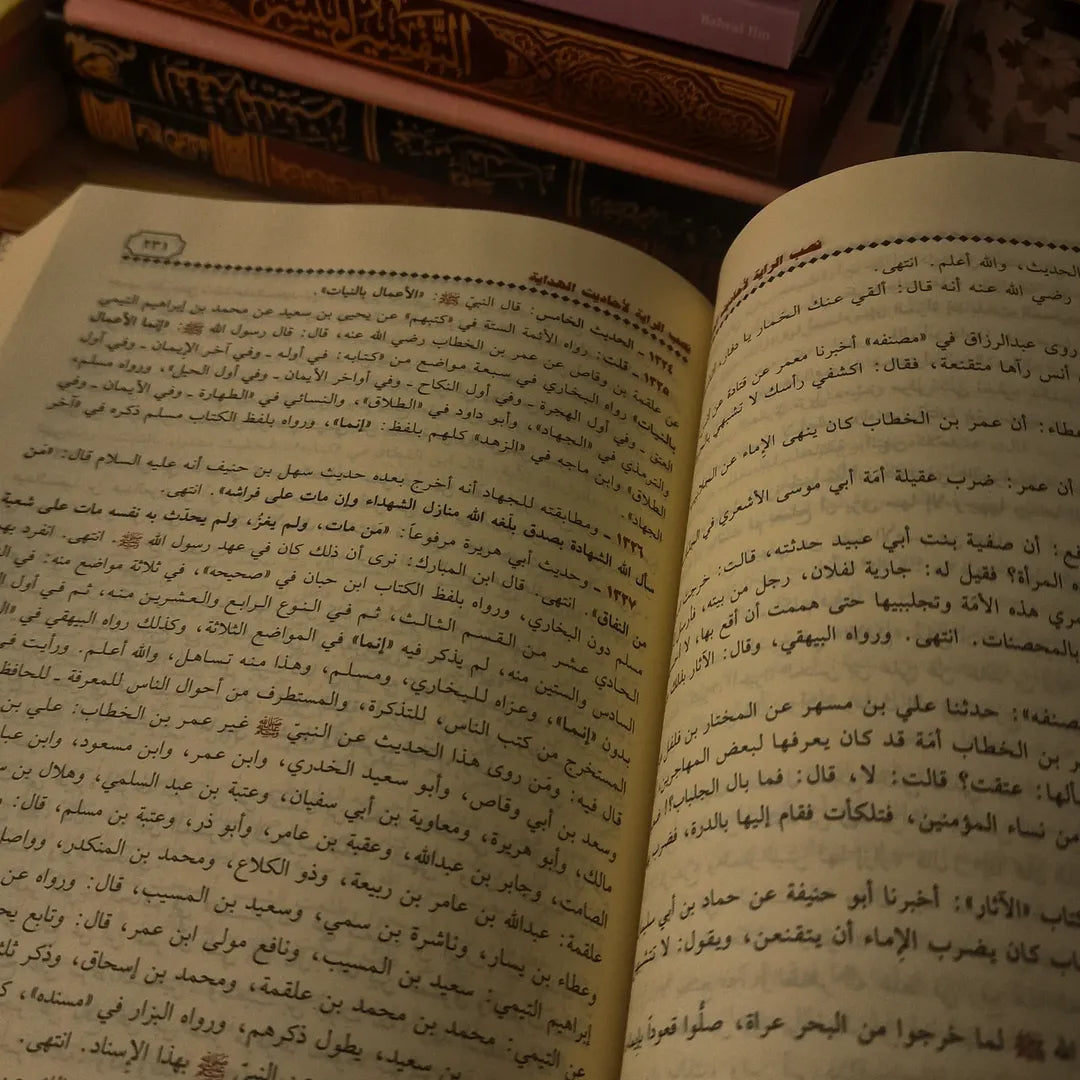 Bahral Ilm
التفسير الميسر
نصب الراية لأحاديث
الحديث، والله أعلم. انتهى.
رضي الله عنه أنه قال: ألقي عنك الخمار يا دفار،
روى عبدالرزاق في «مصنفه» أخبرنا معمر عن قتادة عن
أنس رآها متقنعة، فقال: اكشفي رأسك لا تشبهي
عطاء: أن عمر بن الخطاب كان ينهى الإماء عن
أن عمر: ضرب عقيلة أمَة أبي موسى الأشعري في
فع: أن صفية بنت أبي عبيد حدثته، قالت: خرجت
ه المرأة؟ فقيل له: جارية لفلان، رجل من بيته،
مري هذه الأمَة وتجلببيها حتى هممت أن أقع بها، لا
بالمحصنات. انتهى. ورواه البيهقي، وقال: الآثار بذلك
مصنفه»: حدثنا علي بن مسهر عن المختار بن فلفل
ر بن الخطاب أمَة قد كان يعرفها لبعض المهاجرين
سألها: عتقت؟ قالت: لا، قال: فما بال الجلباب؟!
من نساء المؤمنين، فتلكأت فقام إليها بالدرة، فضرب
كتاب «الآثار»: أخبرنا أبو حنيفة عن حماد بن أبي
اب كان يضرب الإماء أن يتقنعن، ويقول: لا
الله ﷺ لما خرجوا من البحر عراة، صلُّوا قعوداً
٢٣١
نصب الراية لأحاديث الهداية
١٣٢٤ ـ الحديث الخامس: قال النبيّ ﷺ: «الأعمال بالنيات».
١٣٢٥ ـ قلت: رواه الأئمة الستة في «كتبهم» عن يحيى بن سعيد عن محمد بن إبراهيم التيمي
عن علقمة بن وقاص عن عمر بن الخطاب رضي الله عنه، قال: قال رسول الله ﷺ: «إنما الأعمال
بالنيات» رواه البخاري في سبعة مواضع من «كتابه: في أوله ـ وفي آخر الإيمان ـ وفي أول
العتق ـ وفي أول الهجرة ـ وفي أول النكاح ـ وفي أواخر الأيمان ـ وفي أول الحيل»، ورواه مسلم،
والترمذي في «الجهاد»، وأبو داود في «الطلاق»، والنسائي في «الطهارة ـ وفي الأيمان ـ وفي
الطلاق» وابن ماجه في «الزهد» كلهم بلفظ: «إنما»، ورواه بلفظ الكتاب مسلم ذكره في «آخر
الجهاد».
١٣٢٦ ـ ومطابقته للجهاد أنه أخرج بعده حديث سهل بن حنيف أنه عليه السلام قال: «مَن
سأل الله الشهادة بصدق بلّغه الله منازل الشهداء وإن مات على فراشه». انتهى.
١٣٢٧ ـ وحديث أبي هريرة مرفوعاً: «مَن مات، ولم يغزُ، ولم يحدّث به نفسه مات على شعبة
من النفاق». انتهى. قال ابن المبارك: نرى أن ذلك كان في عهد رسول الله ﷺ. انتهى. انفرد بهما
مسلم دون البخاري، ورواه بلفظ الكتاب ابن حبان في «صحيحه»، في ثلاثة مواضع منه: في
الحادي عشر من القسم الثالث، ثم في النوع الرابع والعشرين منه، ثم في أول
السادس والستين منه، لم يذكر فيه «إنما» في المواضع الثلاثة، وكذلك رواه البيهقي في
بدون «إنما»، وعزاه للبخاري، ومسلم، وهذا منه تساهل، والله أعلم. ورأيت في
المستخرج من كتب الناس، للتذكرة، والمستطرف من أحوال الناس للمعرفة ـ للحافظ
قال فيه: ومَن روى هذا الحديث عن النبيّ ﷺ غير عمر بن الخطاب: علي بن
وسعد بن أبي وقاص، وأبو سعيد الخدري، وابن عمر، وابن مسعود، وابن عبا
مالك، وأبو هريرة، ومعاوية بن أبي سفيان، وعتبة بن عبد السلمي، وهلال بن
الصامت، وجابر بن عبدالله، وعقبة بن عامر، وأبو ذر، وعتبة بن مسلم، قال:
علقمة: عبدالله بن عامر بن ربيعة، وذو الكلاع، ومحمد بن المنكدر، وواصل
وعطاء بن يسار، وناشرة بن سمي، وسعيد بن المسيب، قال: ورواه عن
إبراهيم التيمي: سعيد بن المسيب، ونافع مولى ابن عمر، قال: وتابع
عن التيمي: محمد بن محمد بن علقمة، ومحمد بن إسحاق، وذكر
بن سعيد، يطول ذكرهم، ورواه البزار في «مسنده»،
عن النبيّ ﷺ بهذا الإسناد. انتهى.